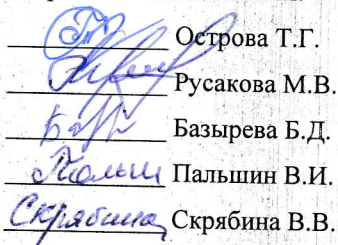 Острова Т.Г.
Русакова М.В.
Базырева Б.Д.
Пальшин В.И.
Скрябина Скрябина В.В.